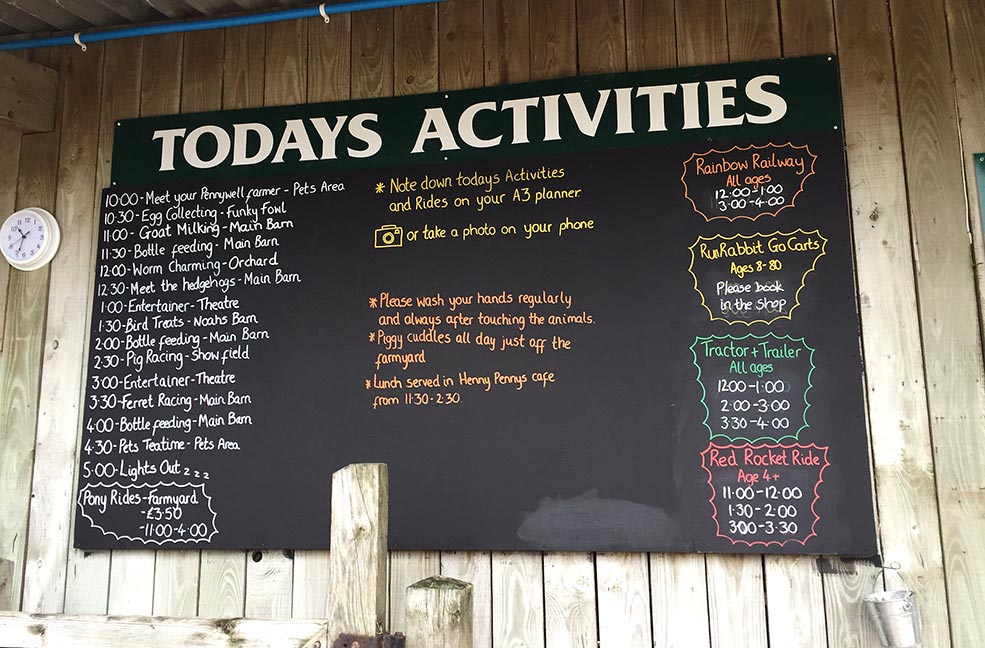 TODAYS ACTIVITIES
10:00-Meet your Pennywell farmer - Pets Area
10:30-Egg Collecting-Funky Fowl
11:00- Goat Milking-Main Barn
11:30-Bottle feeding-Main Barn
12:00-Worm Charming-Orchard
12:30-Meet the hedgehogs-Main Barn
1:00-Entertainer-Theatre
1:30-Bird Treats-Noahs Barn
2:00-Bottle feeding-Main Barn
2:30-Pig Racing-Show field
3:00-Entertainer-Theatre
3:30-Ferret Racing-Main Barn
4:00-Bottle feeding-Main Barn
4:30-Pets Teatime-Pets Area
5:00-Lights Out z z z
Pony Rides-farmyard
-£3.50
-11:00-4:00
* Note down todays Activities
and Rides on your A3 planner.
or take a photo on your phone
*Please wash your hands regularly
and always after touching the animals.
*Piggy cuddles all day just off the
farmyard
*Lunch served in Henny Pennys cafe
from 11:30-2:30.
Rainbow Railway
All ages
12:00-1:00
3:00-4:00
RunRabbit Go Carts
Ages 8-80
Please book
in the shop
Tractor+Trailer
All ages
12:00-1:00
2:00-3:00
3:30-4:00
Red Rocket Ride
Age 4+
11:00-12:00
1:30-2:00
3:00-3:30